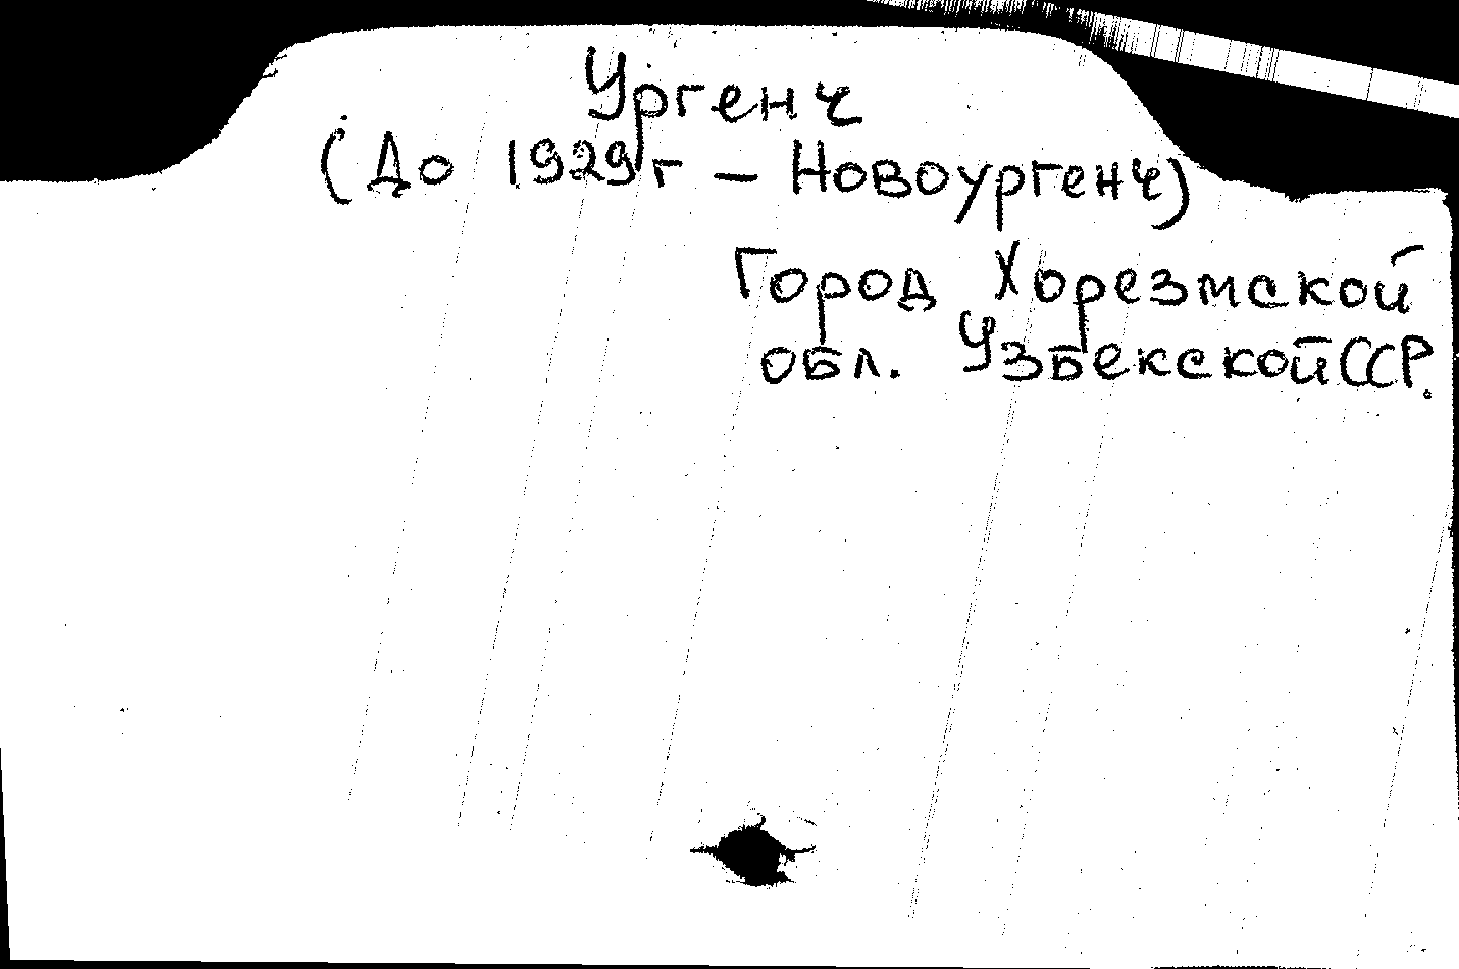 Ургенч
(До 1929г – Новоургенч)
Город Хорезмской
обл. Узбекской ССР.